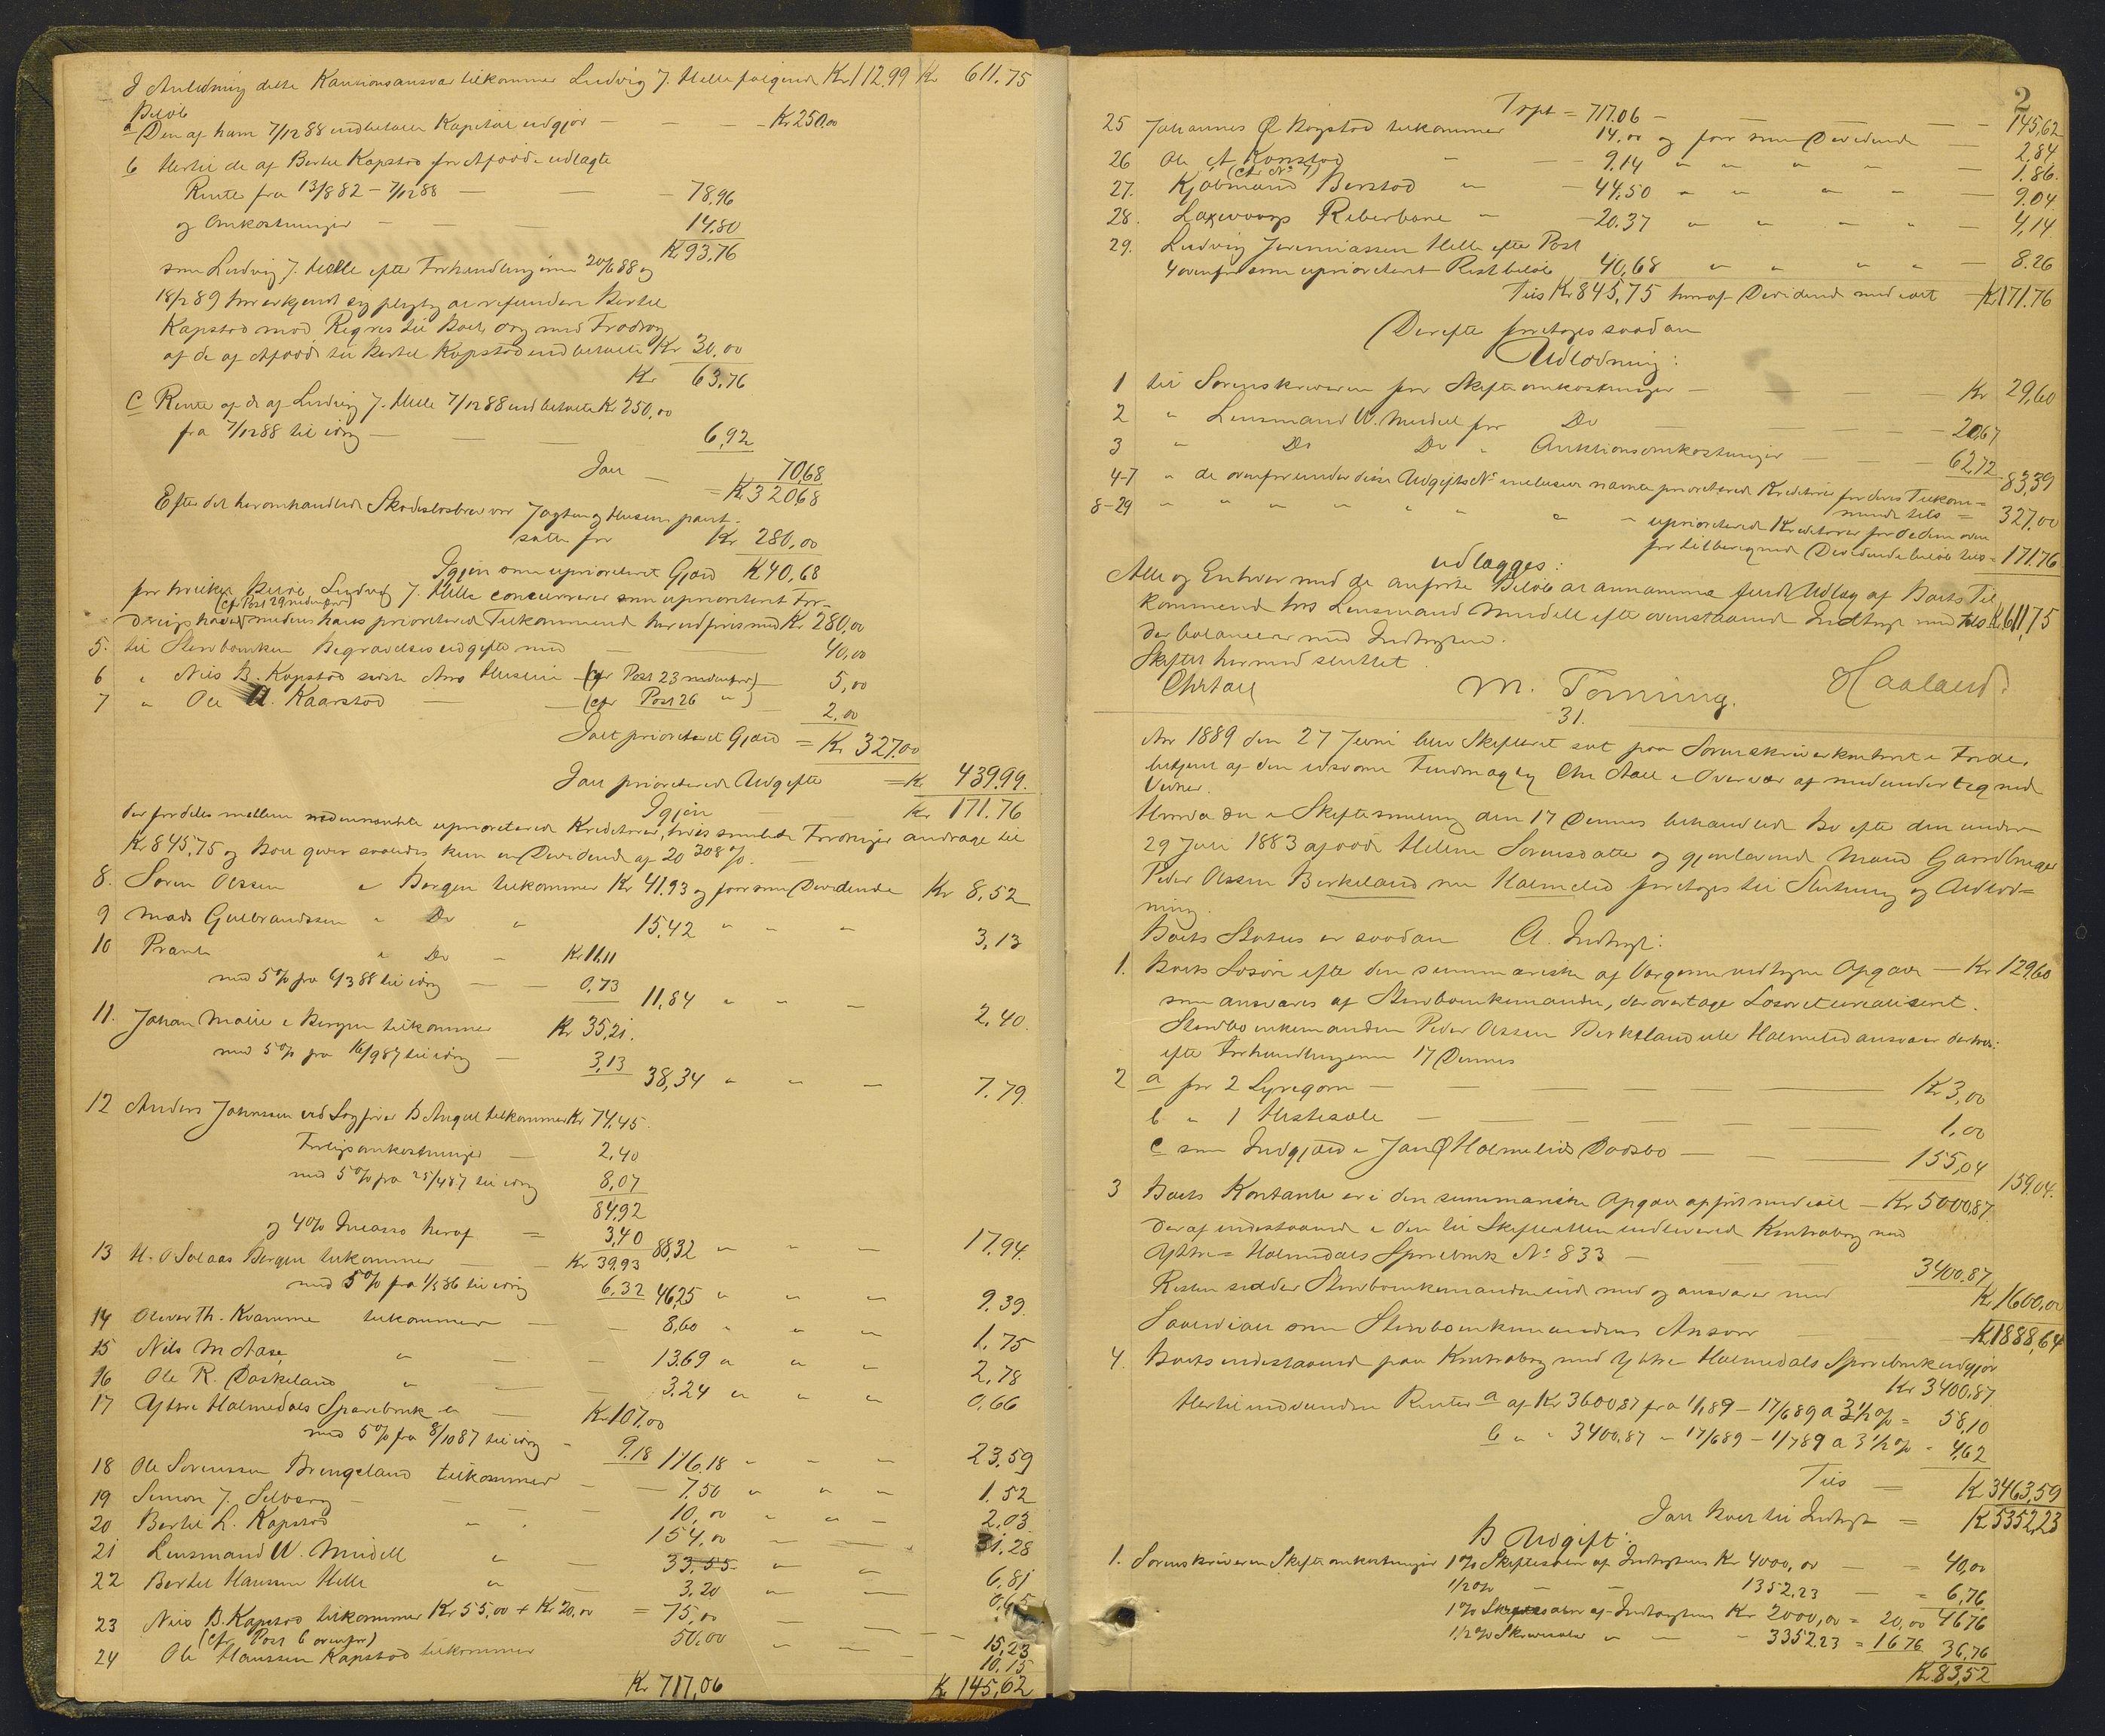 I Anledning dette Kautionsansvar tilkommer Ludvig J. Helle følgende Kr 112.99 Kr 611.75
Beløb
a Den af ham 7/12 88 indbetalte Kapital udgjør — Kr 250,00
b Hertil de af Bertel Kapstad for Afdøde udlagte
Rente fra 13/8 82 – 7/12 88 — 78,96
og Omkostninger — 14.80
Kr 93,76
som Ludvig J. Helle efter Forhandlingerne 20/6 88 og
18/2 89 har erkjendt sig pligtig at refundere Bertel
Kapstad mod Regres til Boet, dog med Fradrag
af de af Afdøde til Bertel Kapstad indbetalte Kr 30,00
Kr 63,76
c Rente af de af Ludvig J. Helle 7/12 88 indbetalte Kr 250,00
fra 7/12 88 til idag — 6,92
Ialt — 70,68
= Kr 320,68
Efter det heromhandlede Skadesløsbrev var Jagten og Husene pant-
satte for Kr 280,00
Igjen som uprioriteret Gjæld Kr 40,68
for hvilket Beløb Ludvig J. Helle concurrerer som uprioriteret For-
(cfr Post 29 nedenfor)
dringshaver, medens hans prioriterede Tilkommende her udføres med Kr 280,00
5. til Stervboenken Begravelsesudgifter med — 40,00
6 " Nils B. Kapstad sidste Aars Husleie (cfr Post 23 nedenfor) — 5,00
7 " Ole A. Kaarstad — (cfr Post 26 ") — 2,00
Ialt prioriteret Gjæld = Kr 327.00
Ialt prioriterede Udgifter = Kr 439.99.
Igjen Kr 171.76
der fordeles mellem nedennævnte uprioriterede Kreditorer, hvis samlede Fordringer andrage til
Kr 845,75 og Boet giver saaledes kun en Dividende af 20 308 %.
8. Søren Olssen i Bergen tilkommer Kr 41.93 og faar som Dividende Kr 8,52
9 Mads Gulbrandssen " Do " 15,42 " " " 3,13
10 Prante " Do " Kr 11.11
med 5% fra 6/3 88 til idag — 0,73 11,84 " " — 2,40.
11. Johan Møller i Bergen tilkommer Kr 35,21.
med 5% fra 16/9 87 til idag — 3,13 38,34 " " — 7.79.
12 Anders Johnssen ved Sagfører B Angell tilkommer Kr 74,45.
Forligsomkostninger — 2,40
med 5% fra 25/4 87 til idag 8,07
84,92
og 4% Incasso heraf = 3,40 88,32 " " — 17,94.
13 H. O Solaas Bergen tilkommer — Kr 39,93
med 5% fra 1/5 86 til idag 6,32 46,25 " " " 9.39.
14 Oliver Th. Kvamme tilkommer — 8,60 " " " 1,75
15 Nils M Aase " — 13.69 " " " 2,78
16 Ole R. Daskeland " — 3.24 " " " 0,66
17 Ytre Holmedals Sparebank " — Kr 107,00
med 5% fra 8/10 87 til idag — 9.18 116.18 " " " 23,59
18 Ole Sørenssen Bringeland tilkommer — 7.50 " " " 1.52
19 Simon J. Solberg — 10,00 " " — 2,03
20 Bertel L. Kapstad " " 154,00 — 31,28
21 Lensmand W. Meidell " 33,55 " — 6,81
22 Bertel Hanssen Helle " — 3,20 " — 0,65
23 Nils B. Kapstad tilkommer Kr 55,00 + Kr 20,00 = 75,00 — 15,23
(cfr Post 6 ovenfor)
24 Ole Hanssen Kapstad tilkommer 50,00 " " — 10,15
Kr 717,06 Kr 145,62
2
Trspt = 717.06 — 145,62
25 Johannes O Bogstad tilkommer 14,00 og faar som Dividende — 2,84
26 Ole A Kaarstad — 9,14 " " " " — 1,86.
(cfr No 7)
27. Kjøbmand Berstad " — 44,50 " " " " — 9,04.
28. Laxevaags Reberbane " — 20.37 " " " " — 4,14
29. Ludvig Jeremiassen Helle efter Post
4 ovenfor som uprioriteret Restbeløb 40,68 " " " " — 8.26
Tils Kr 845,75 hvoraf Dividende med ialt — Kr 171.76
Derefter foretoges saadan
Udlodning:
1 til Sorenskriveren for Skifteomkostninger — Kr 29,60
2 " Lensmand W. Meidell for Do — 20,67
3 " Do Do " Auktionsomkostninger — 62,72 83,39
4-7 " de ovenfor under disse Udgifts No inclusive nævnte prioriterede Kreditorer for deres Tilkom-
mende tils = 327,00
8-29 " " " " " " " " uprioriterede Kreditorer for de dem oven
for tilberegnede Dividendebeløb tils = 171.76
udlægges:
Alle og Enhver med de anførte Beløb at annamme fuldt Udlæg af Boets Til
kommende hos Lensmand Meidell efter ovenstaaende Indtægt med tils Kr 611,75
der balancerer med Indtægten.
Skiftet hermed sluttet.
Chr Aall M. Torning. Haaland.
31.
Aar 1889 den 27 Juni blev Skifteret sat paa Sorenskriverkontoret i Førde,
betjent af den edsvorne Fuldmægtig Chr Aall i Overvær af medundertegnede
Vidner.
Hvorda det i Skiftesamling den 17 Dennes behandlede Bo efter den under
29 Juli 1883 afdøde Helene Sørensdatter og gjenlevende Mand Gaardbruger
Peder Olssen Birkeland nu Holmelid foretoges til Slutning og Udlod-
ning.
Boets Status er saadan A. Indtægt:
1. Boets Løsøre efter den summariske af Værgerne vedtagne Opgave — Kr 129,60
som ansvares af Stervboenkemanden, der overtager Løsøret urealiseret.
Stervboenkemanden Peder Olssen Birkeland eller Holmelid ansvarer derhos:
efter Forhandlingerne 17 Dennes
2 a for 2 Lyregarn — Kr 3,00
b " 1 Hestesæle — 1,00
c som Indgjæld i Jan O Holmelids Dødsbo — 155,04 159,04.
3 Boets Kontanter er i den summariske Opgave opført med ialt — Kr 5000,87.
Deraf indestaaende i den til Skifteretten indleverede Kontrabog med
Ytre Holmedals Sparebank No 833 — 3400,87
Resten sidder Stervboenkemanden inde med og ansvarer med Kr 1600,00
Saaledes ialt som Stervboenkemandens Ansvar — Kr 1888,64
4. Boets indestaaende paa Kontrabog med Ytre Holmedals Sparebank udgjør
Kr 3400,87.
Hertil indvundne Renter a af Kr 3600,87 fra 1/1 89 – 17/6 89 a 3 1/2 % = 58,10
b " " 3400,87 " 17/6 89 – 1/7 89 a 3 1/2 % = 4,62
Tils — Kr 3463,59
Ialt Boet til Indtægt = Kr 5352,23
B Udgift:
1. Sorenskriveren Skifteomkostninger 1% Skiftesalær af Indtægtens Kr 4000,00 — = 40,00
1/2 % — 1352,23 — = 6,76
1% Skriversalær af Indtægtens Kr 2000,00 = 20,00 46,76
1/2 % Skriversalær " " — 3352.23 = 16,76 36,76
Kr 83,52